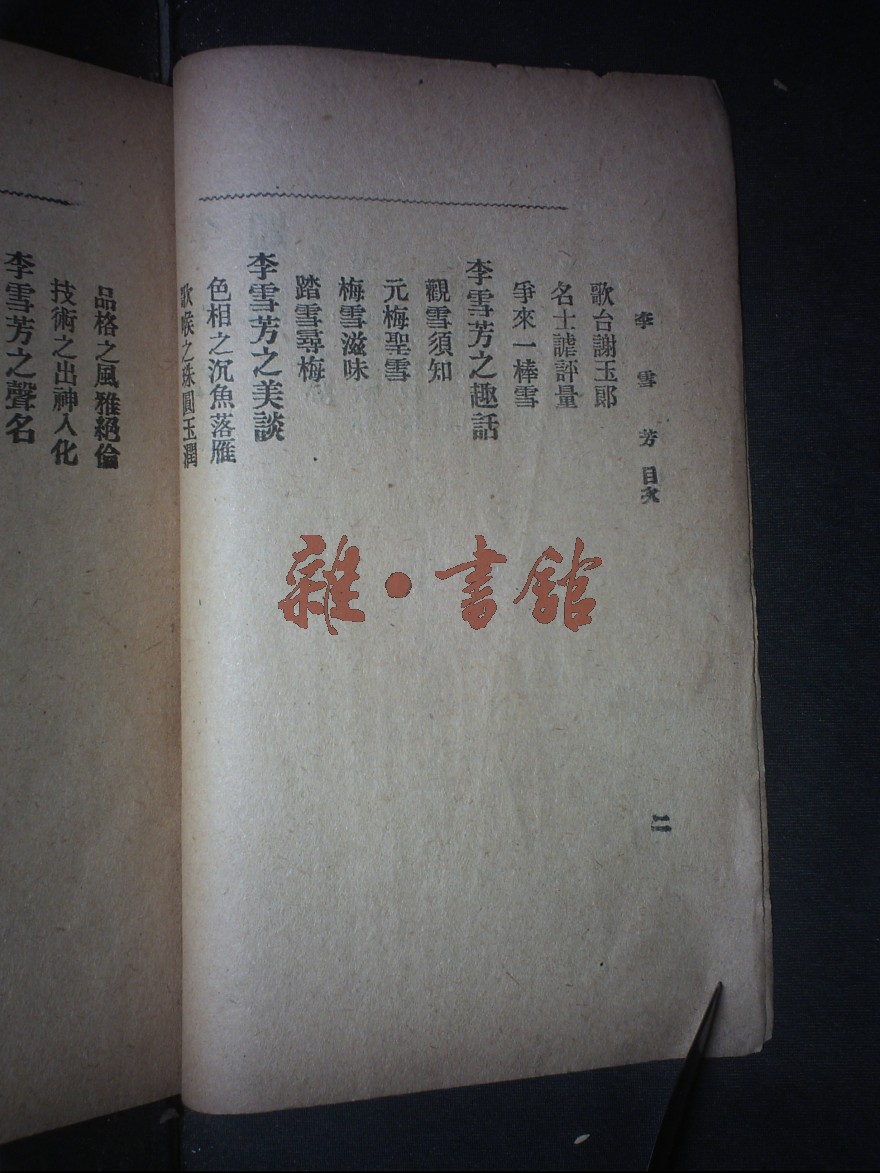 李雪芳 目次
歌台謝玉郞
名士謔評量
爭來一棒雪
李雪芳之趣話
觀雪須知
元梅聖雪
梅雪滋味
踏雪尋梅
李雪芳之美談
色相之沉魚落雁
歌喉之珠圓玉潤
二
品格之風雅絕倫
技術之出神入化
李雪芳之聲名
雜·書館